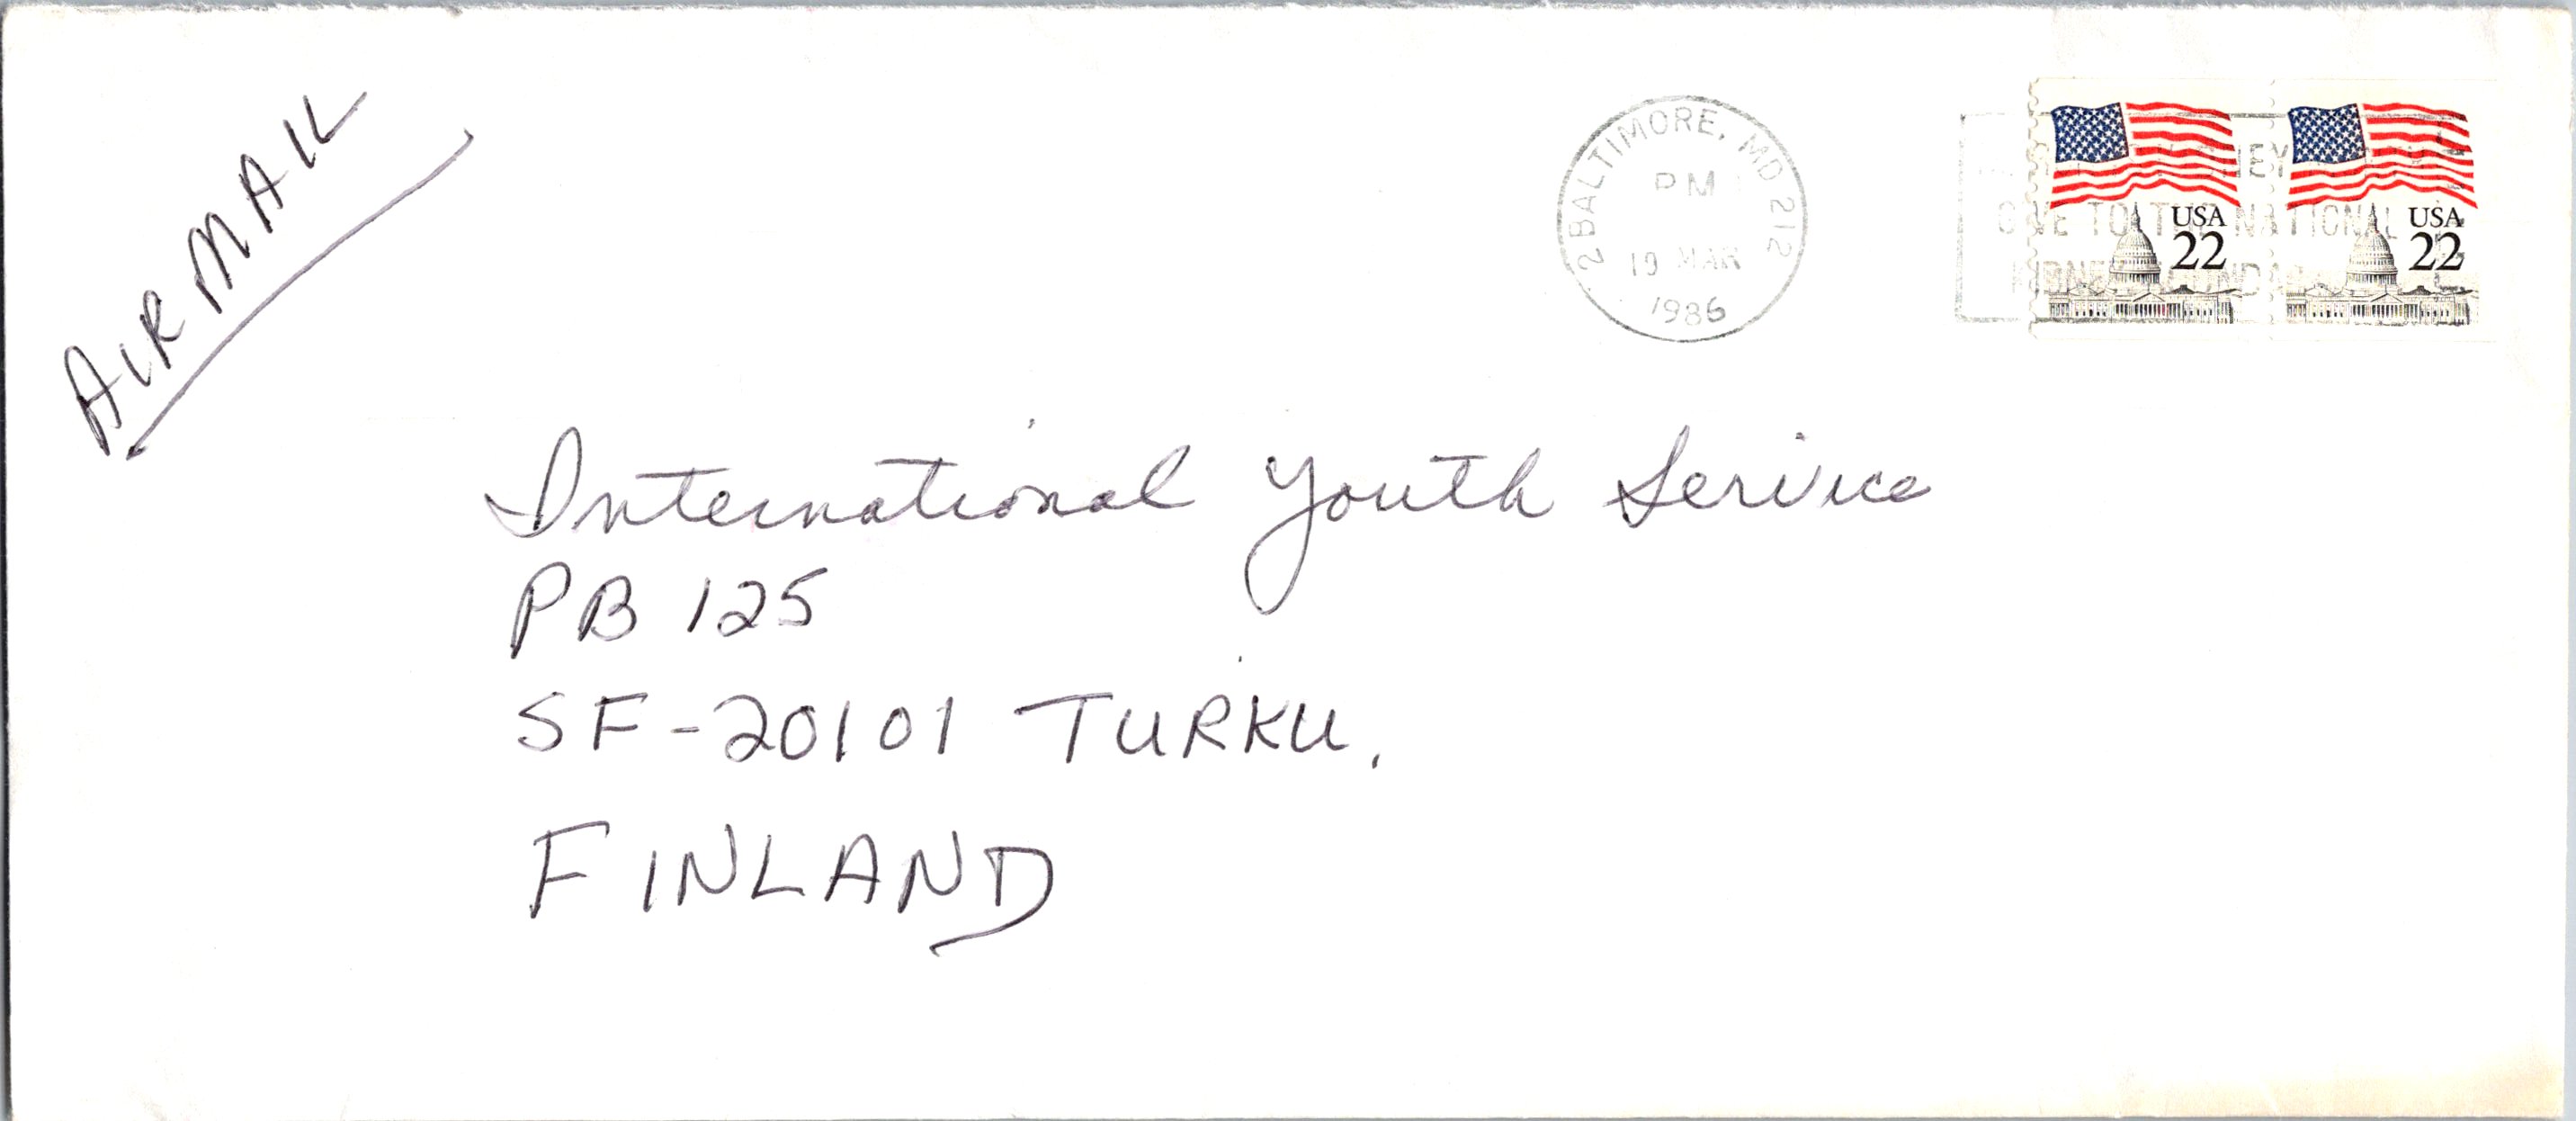 AIRMAIL
2 BALTIMORE, MD 212
PM
19 MAR
1986
GIVE TO THE NATIONAL
KIDNEY
USA
22
USA
22
International Youth Service
PB 125
SF-20101 TURKU.
FINLAND